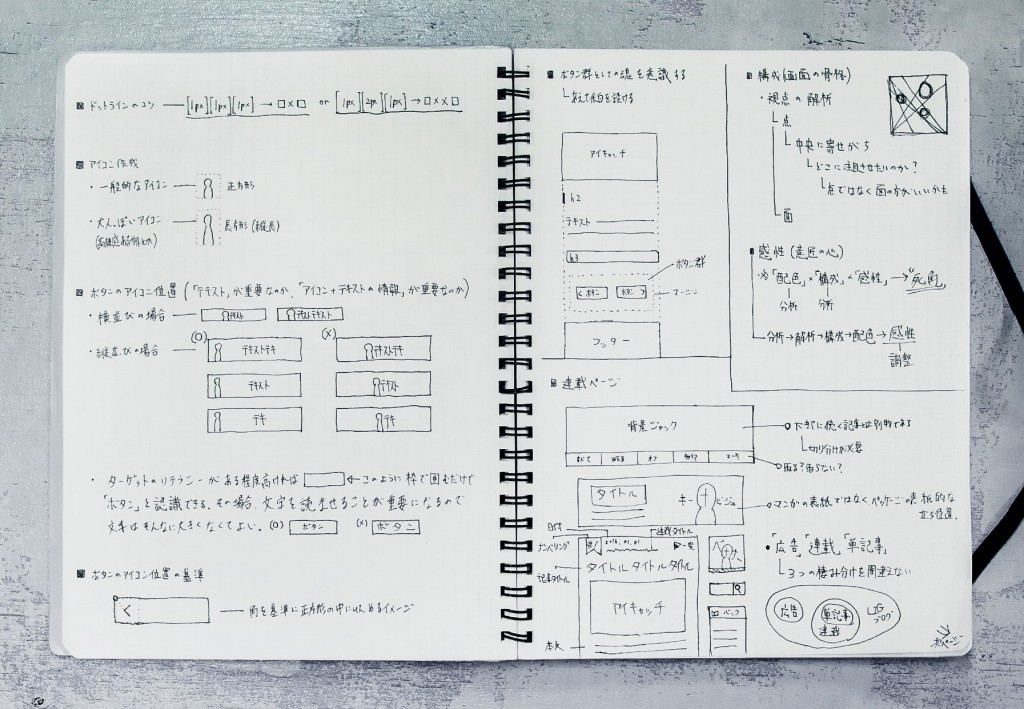 ドットラインのコツ
[1px][1px][1px] → □×□ or [1px][2px][1px] → □××□
アイコン作成
・一般的なアイコン
正方形
・大人っぽいアイコン
長方形(縦長)
ボタンのアイコン位置(「テキスト」が重要なのか、「アイコン+テキストの情報」が重要なのか)
・横並びの場合
テキスト
テキストテキスト
・縦並びの場合
(○)
(×)
テキストテキ
テキストテキ
テキスト
テキスト
テキ
テキ
・ターゲットのリテラシーがある程度高ければ ←このように枠で囲むだけで
「ボタン」と認識できる。その場合、文字を読ませることが重要になるので
文字はそんなに大きくなくてよい。(○) ボタン (×) ボタン
ボタンのアイコン位置の基準
<
角を基準に正方形の中に収めるイメージ
ボタン群としての塊を意識する
└あえて余白を設ける
アイキャッチ
h2
テキスト
h3
ボタン群
< ボタン
ボタン >
マージン
フッター
構成(画面の骨格)
・視点の解析
└点
└中央に寄せがち
└どこに注目させたいのか?
└点ではなく面の方がいいかも
└面
感性(意匠の心)
「配色」×「構成」×「感性」→“死角”
分析
分析
分析→解析→構成→配色→感性
調整
連載ページ
背景ジャック
すべて
WEB
オフ
ユーザ
下部に続く記事とは別物である
└切り分けが必要
タイトル
キー
ビジュ
マンガの表紙ではなくパッケージの表紙的な
立ち位置。
日付
連載タイトル
ナンバリング
2016.01.01
一覧
記事タイトル
タイトルタイトルタイトル
アイキャッチ
本文
・「広告」「連載」「単記事」
└3つの棲み分けを間違えない
広告
単記事
連載
LIG
ブログ
次ページ